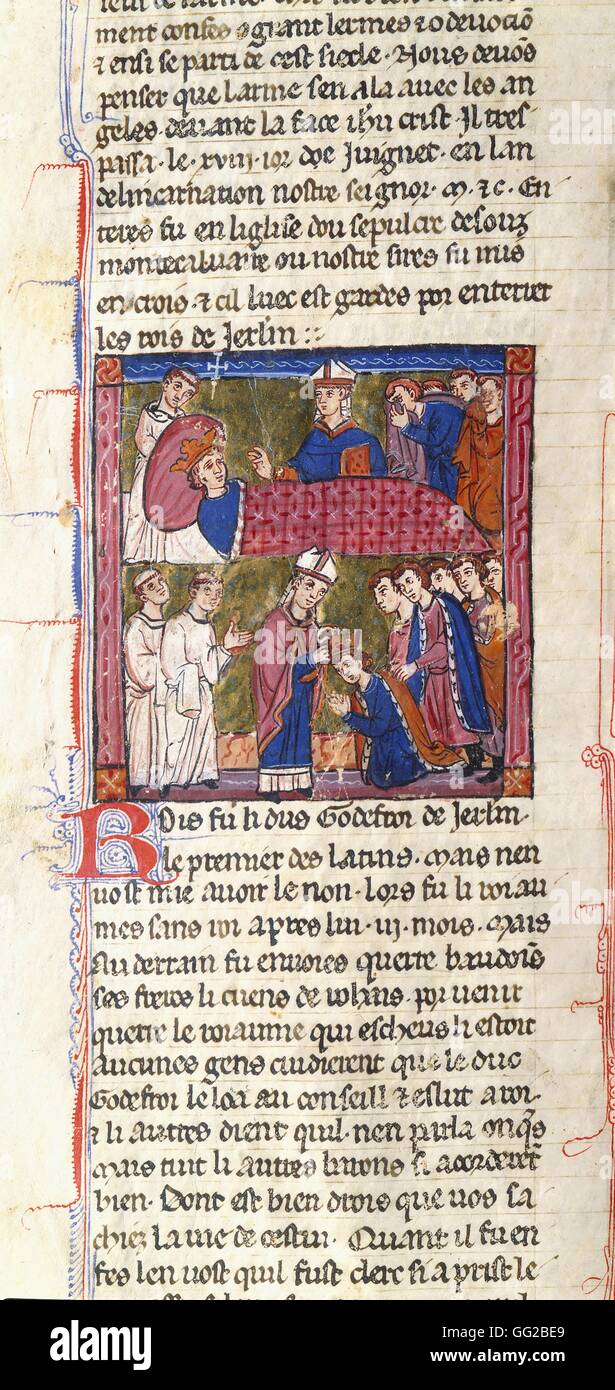 ment confes & grant lermes & o devociō
& ensi se parti de cest siecle. Nous devōs
penser que larme sen ala avec les an
geles devant la face ihu crist. Il tres
passa. le. xviii. ior de Juignet. en lan
delincarnation nostre seignor. M. & c. En
teres fu en leglise dou sepulcre desouz
monte ou nostre sires fu mis
en crois. & cil luec est gardes por enterrer
les rois de Jerlm
Rois fu li dus Godefroi de Jerlm.
le premier des latins. mais nen
vost mie avoir le non. lors fu li roiau
mes sans roi apres lui. iii. mois. Mais
Au derrain fu envoies querre baudois
ses freres li cuens de rohais. por venir
querre le roiaume qui escheus li estoit
Aucunes gens cuidierent que le duc
Godefroi le loa au conseill & eslut a roi.
& li autres dient quil. nen parla onq̄s
mais tuit li autres barons si acorderēt
bien. Dont est bien drois que vos sa
chiez la vie de cestui. Quant il fu en
fes len vost quil fust clerc si aprist le
alamy
Image ID: GG2BE9
www.alamy.com